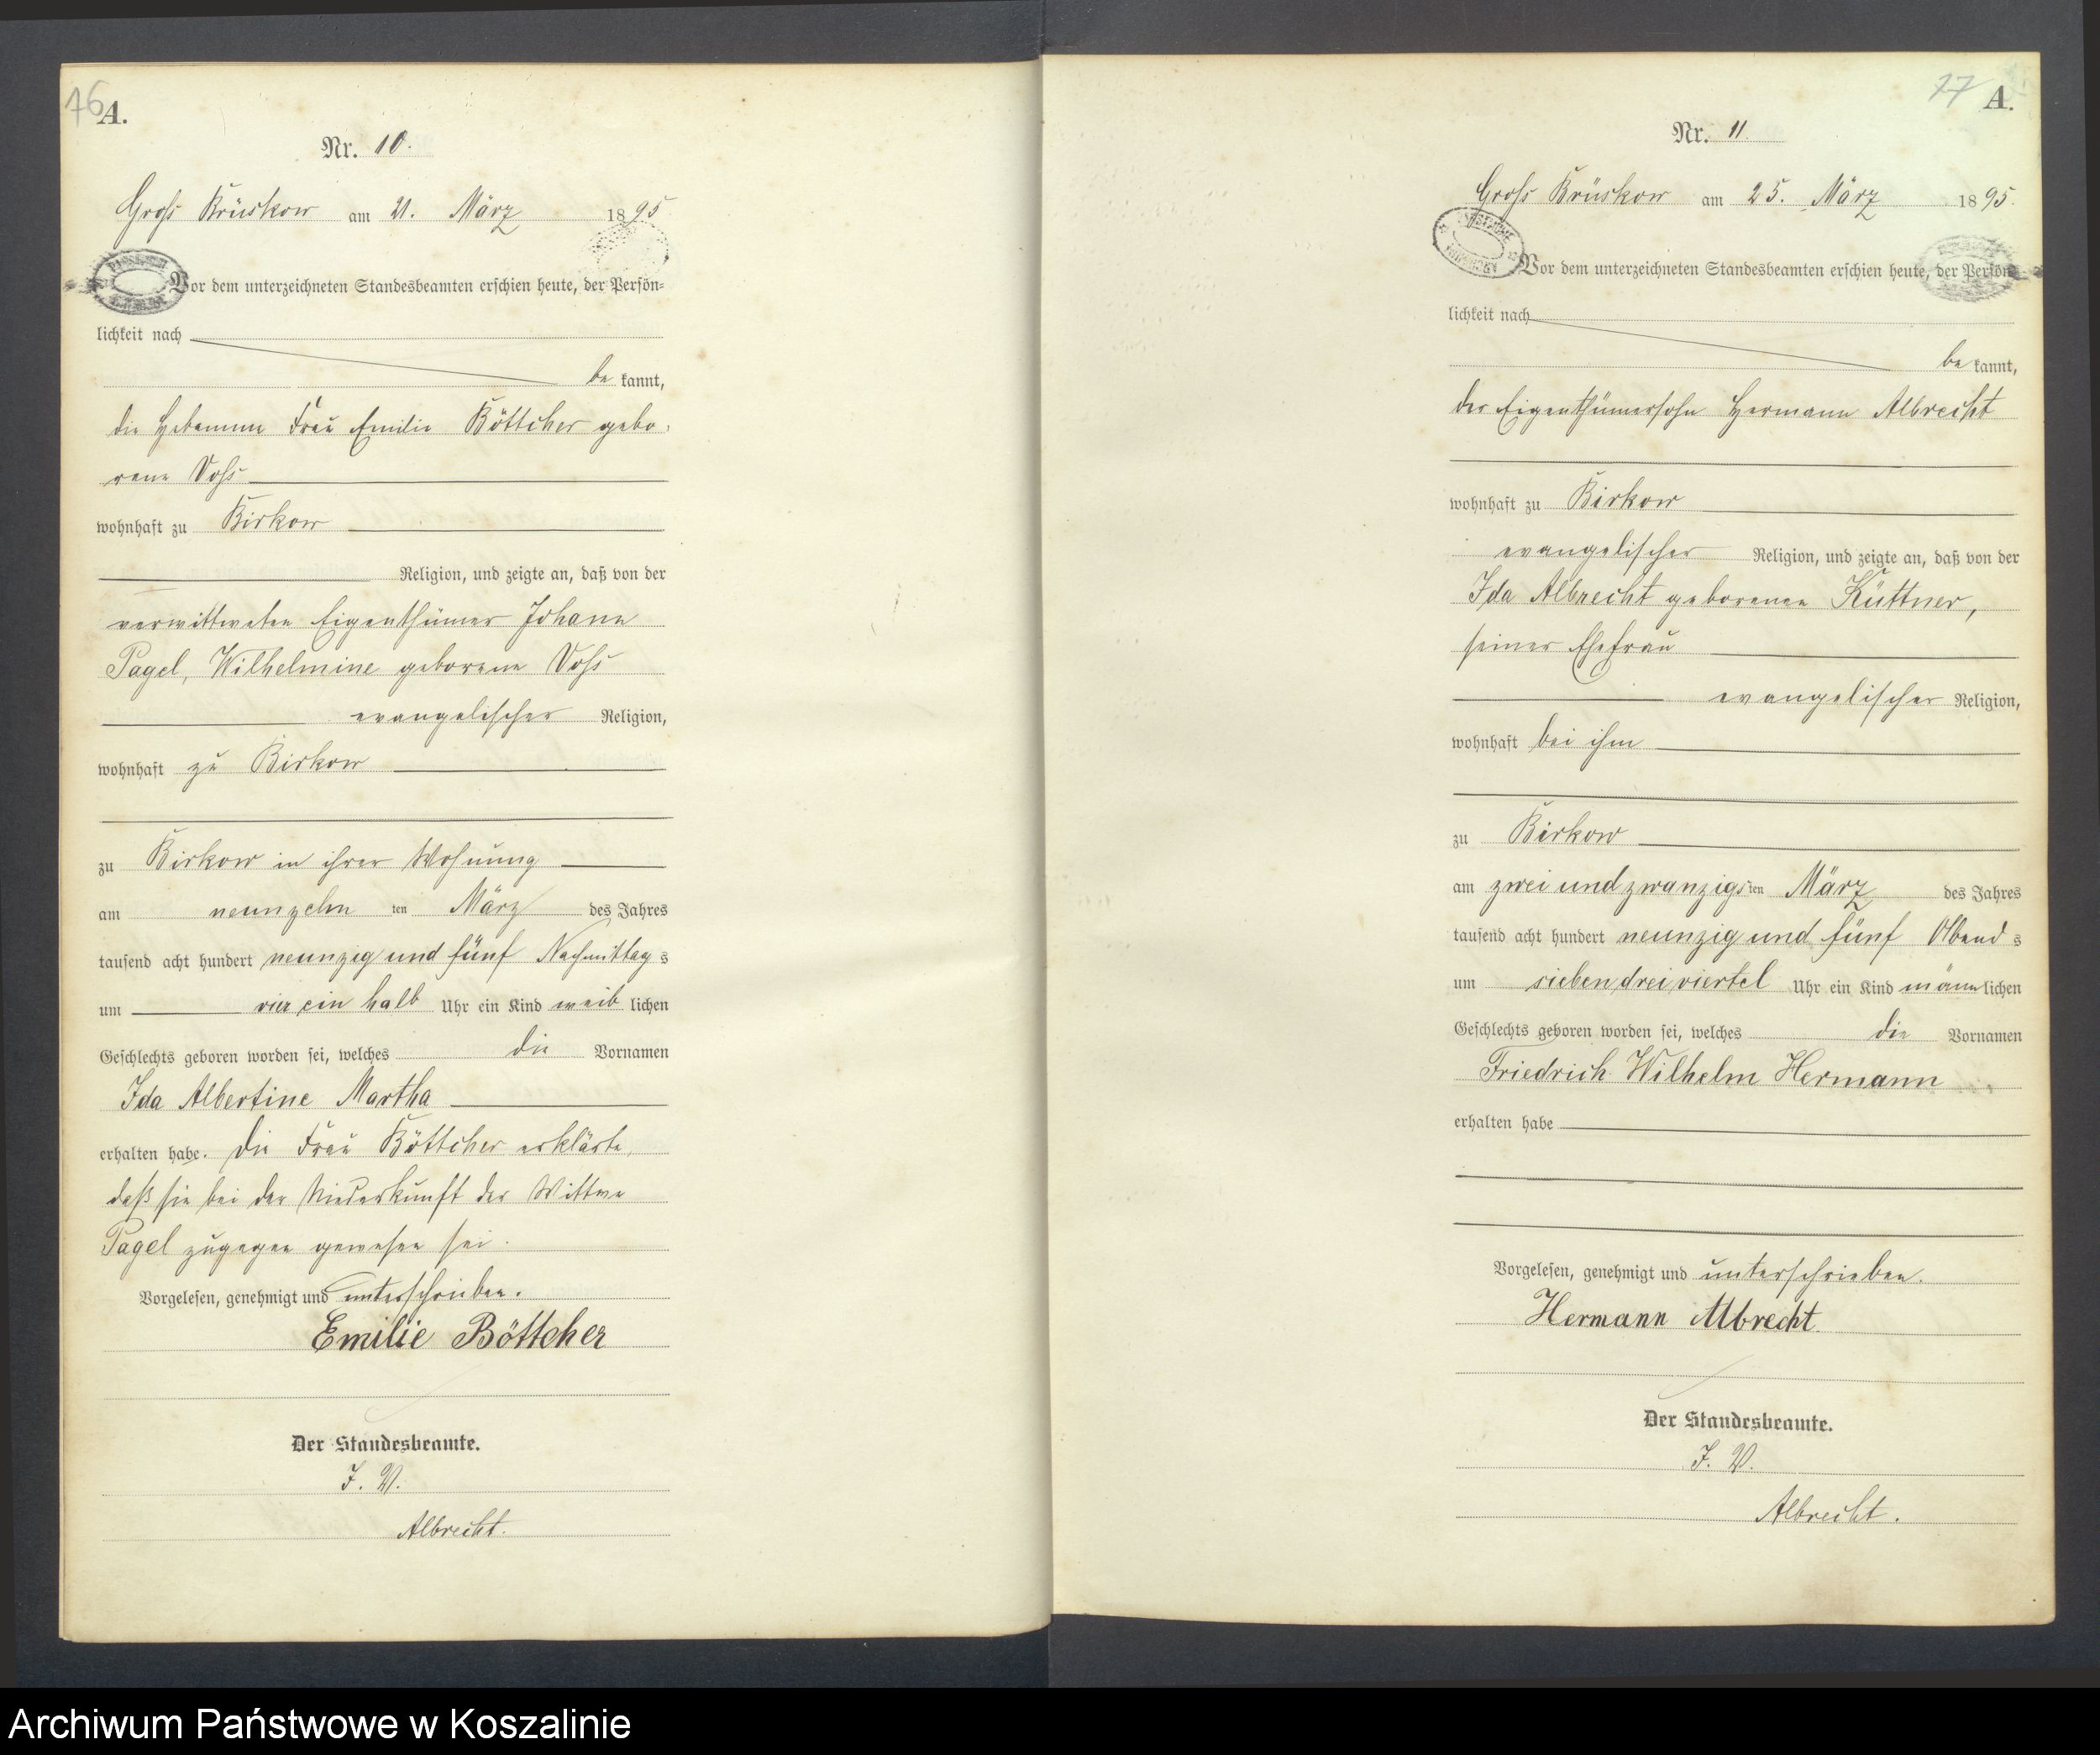 76 A.
Nr. 10.
Groß Brüskow am 21. März 1895
Vor dem unterzeichneten Standesbeamten erschien heute, der Persön-
lichkeit nach
be kannt,
die Hebamme Frau Emilie Böttcher gebo-
rene Voß
wohnhaft zu Birkow
Religion, und zeigte an, daß von der
verwittweten Eigenthümer Johann
Pagel, Wilhelmine geborene Voß
evangelischer Religion,
wohnhaft zu Birkow
zu Birkow in ihrer Wohnung
am neunzehn ten März des Jahres
tausend acht hundert neunzig und fünf Nachmittag s
um vier ein halb Uhr ein Kind weib lichen
Geschlechts geboren worden sei, welches die Vornamen
Ida Albertine Martha
erhalten habe. Die Frau Böttcher erklärte,
daß sie bei der Niederkunft der Wittwe
Pagel zugegen gewesen sei.
Vorgelesen, genehmigt und unterschrieben.
Emilie Böttcher
Der Standesbeamte.
I. V.
Albrecht.
77 A.
Nr. 11
Groß Brüskow am 25. März 1895.
Vor dem unterzeichneten Standesbeamten erschien heute, der Persön-
lichkeit nach
be kannt,
der Eigenthümersohn Hermann Albrecht
wohnhaft zu Birkow
evangelischer Religion, und zeigte an, daß von der
Ida Albrecht geborenen Küttner,
seiner Ehefrau
evangelischer Religion,
wohnhaft bei ihm
zu Birkow
am zwei und zwanzigs ten März des Jahres
tausend acht hundert neunzig und fünf Abend s
um sieben drei viertel Uhr ein Kind männ lichen
Geschlechts geboren worden sei, welches die Vornamen
Friedrich Wilhelm Hermann
erhalten habe
Vorgelesen, genehmigt und unterschrieben.
Hermann Albrecht
Der Standesbeamte.
I. V.
Albrecht.
Archiwum Państwowe w Koszalinie